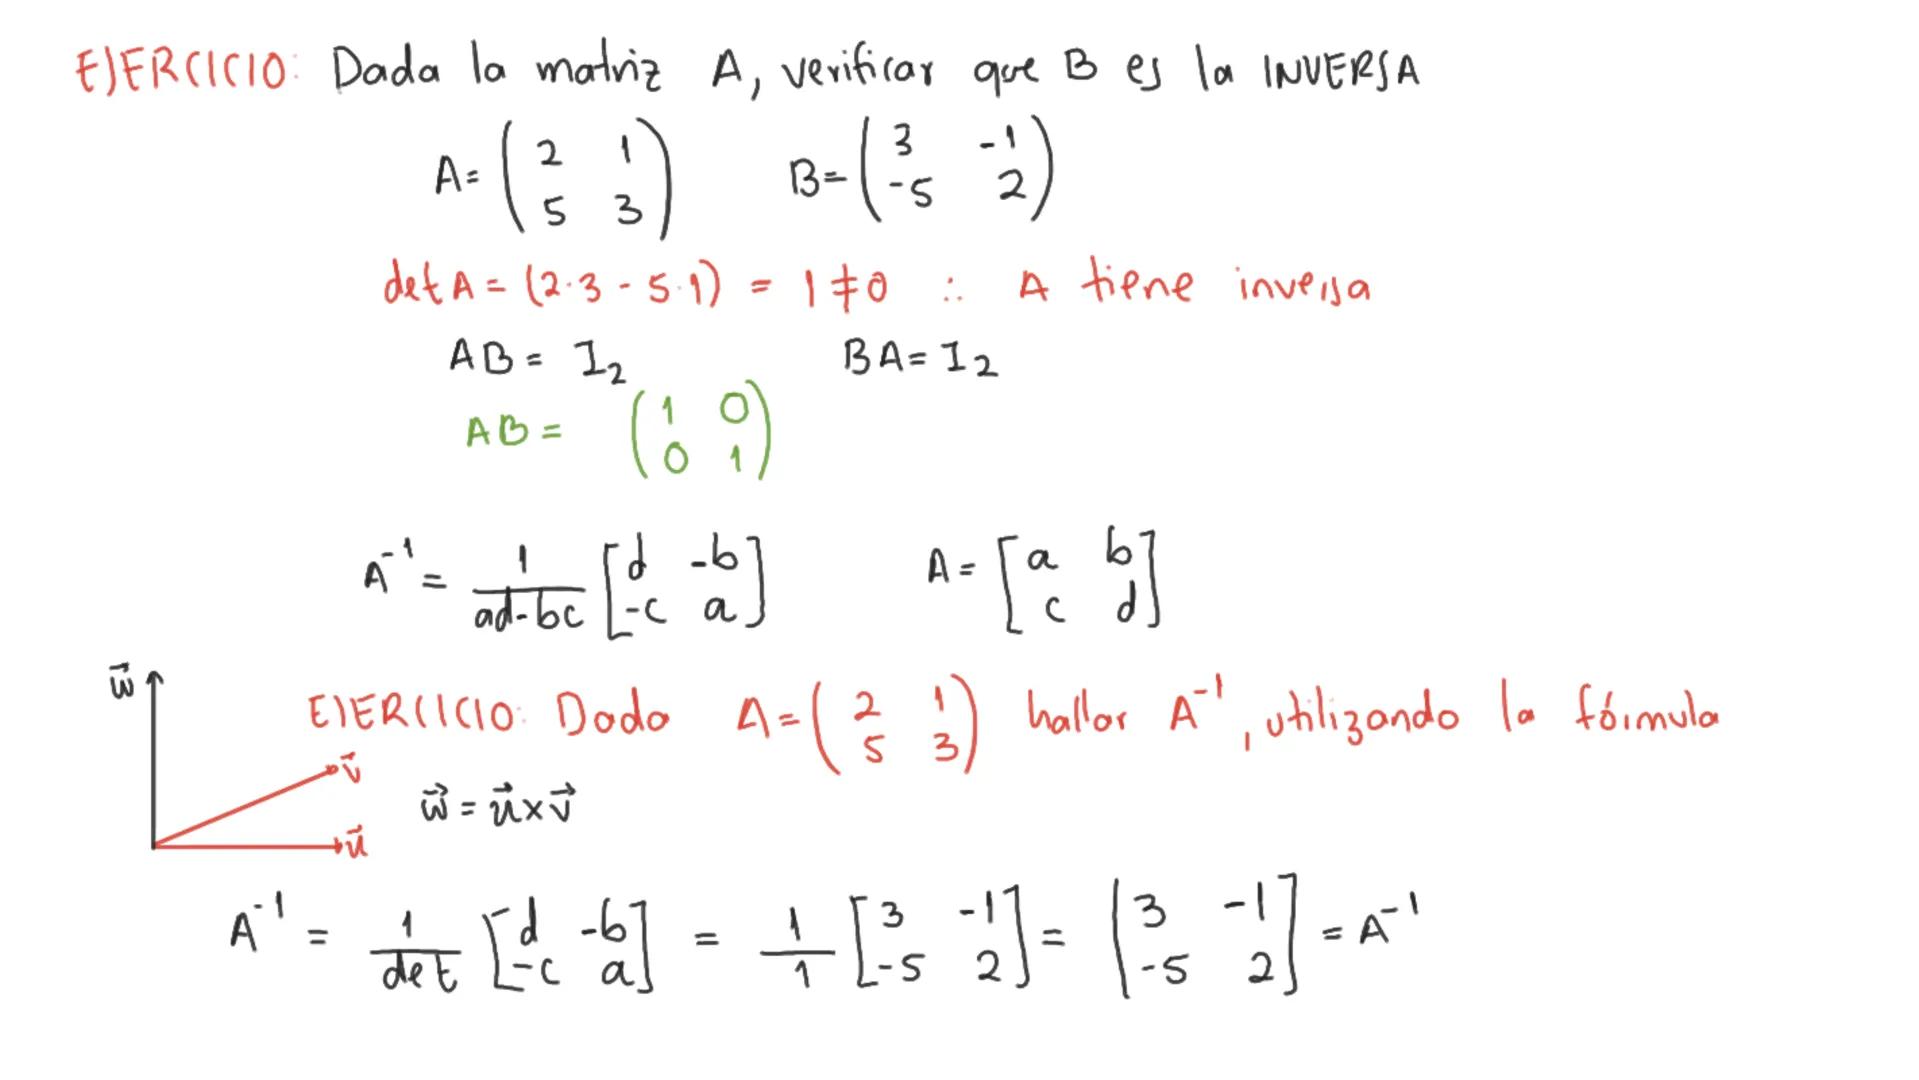 EJERCICIO: Dada la matriz A, verificar que B es la INVERSA
A = ( 2 1 ; 5 3 ) B = ( 3 -1 ; -5 2 )
det A = (2·3 - 5·1) = 1 ≠ 0 ∴ A tiene inversa
AB = I₂ BA = I₂
AB = ( 1 0 ; 0 1 )
A⁻¹ = 1/(ad-bc) [ d -b ; -c a ] A = [ a b ; c d ]
w⃗
EJERCICIO: Dada A = ( 2 1 ; 5 3 ) hallar A⁻¹, utilizando la fórmula
v⃗
w⃗ = u⃗ x v⃗
u⃗
A⁻¹ = 1/det [ d -b ; -c a ] = 1/1 [ 3 -1 ; -5 2 ] = [ 3 -1 ; -5 2 ] = A⁻¹